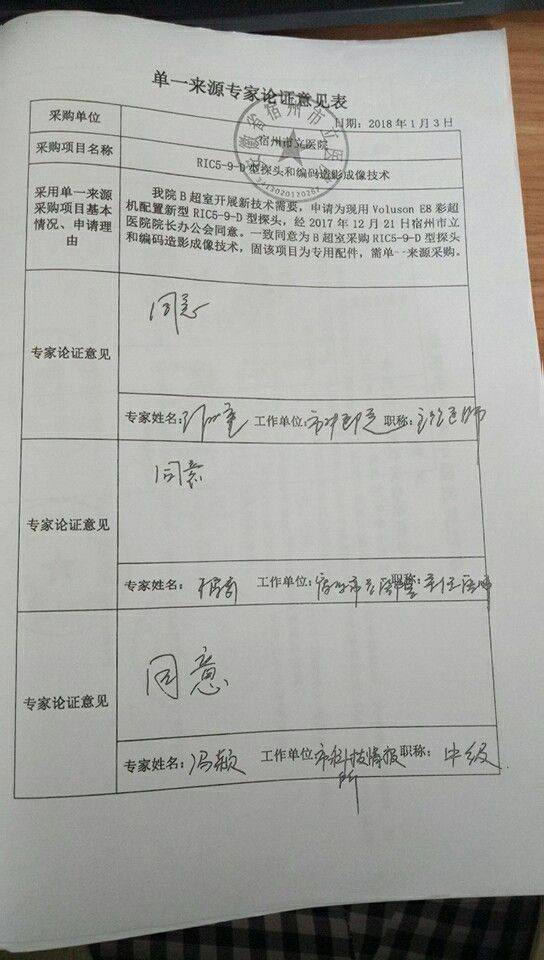 单一来源专家论证意见表
日期：2018年1月3日
采购单位
宿州市立医院
采购项目名称
RIC5-9-D型探头和编码造影成像技术
采用单一来源
采购项目基本
情况、申请理
由
我院B超室开展新技术需要，申请为现用Voluson E8彩超
机配置新型RIC5-9-D型探头，经2017年12月21日宿州市立
医院院长办公会同意。一致同意为B超室采购RIC5-9-D型探头
和编码造影成像技术，固该项目为专用配件，需单一来源采购。
安徽省宿州市立医院
专家论证意见
同意
专家姓名： 工作单位： 职称：主治医师
专家论证意见
同意
专家姓名： 工作单位： 职称：主任医师
专家论证意见
同意
专家姓名：冯颖 工作单位：市科技情报 职称：中级
所